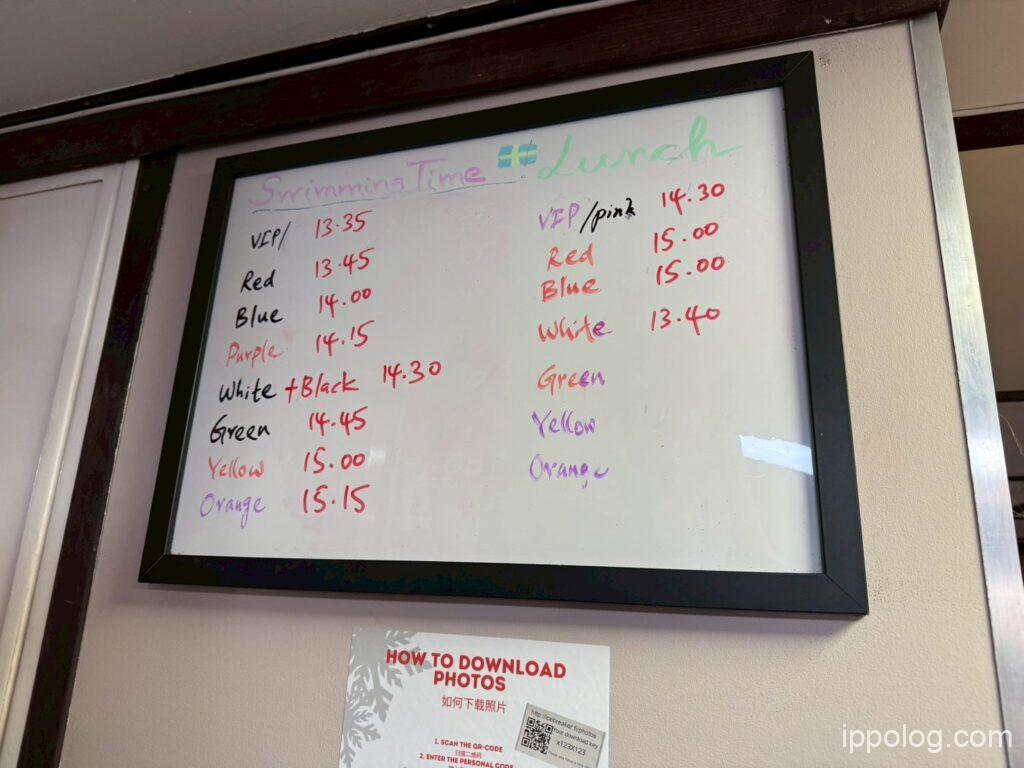 Swimming Time
VIP/ 13.35
Red 13.45
Blue 14.00
Purple 14.15
White + Black 14.30
Green 14.45
Yellow 15.00
Orange 15.15
Lunch
VIP/pink 14.30
Red 15.00
Blue 15.00
White 13.40
Green
Yellow
Orange
HOW TO DOWNLOAD
PHOTOS
如何下载照片
1. SCAN THE QR-CODE
扫描二维码
2. ENTER THE PERSONAL CODE
your download key
x123X123
ippolog.com